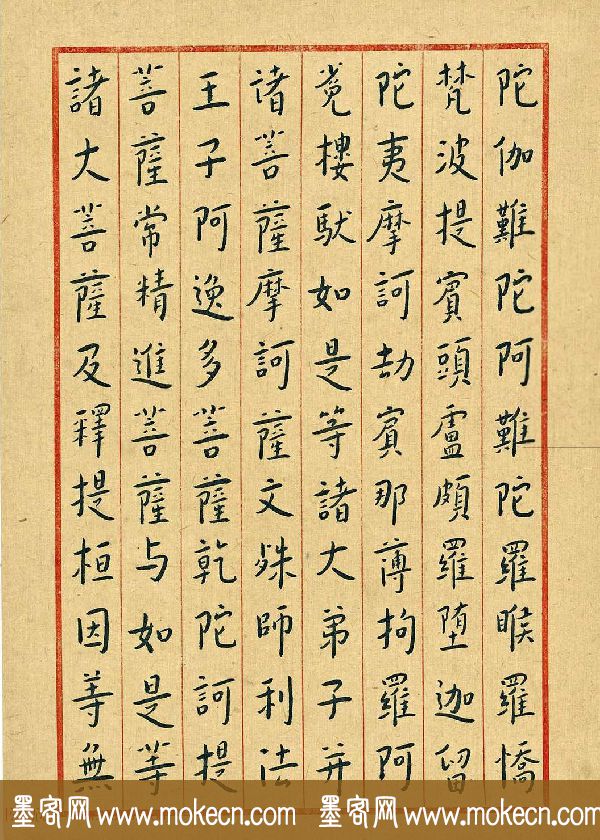 陀伽難陀阿難陀羅睺羅憍
梵波提賓頭盧頗羅堕迦留
陀夷摩訶劫賓那薄拘羅阿
㝹樓馱如是等諸大弟子并
诸菩薩摩訶薩文殊師利法
王子阿逸多菩薩乾陀訶提
菩薩常精進菩薩与如是等
諸大菩薩及釋提桓因等無
墨客网 www.mokecn.com 墨客网 www.mokecn.com